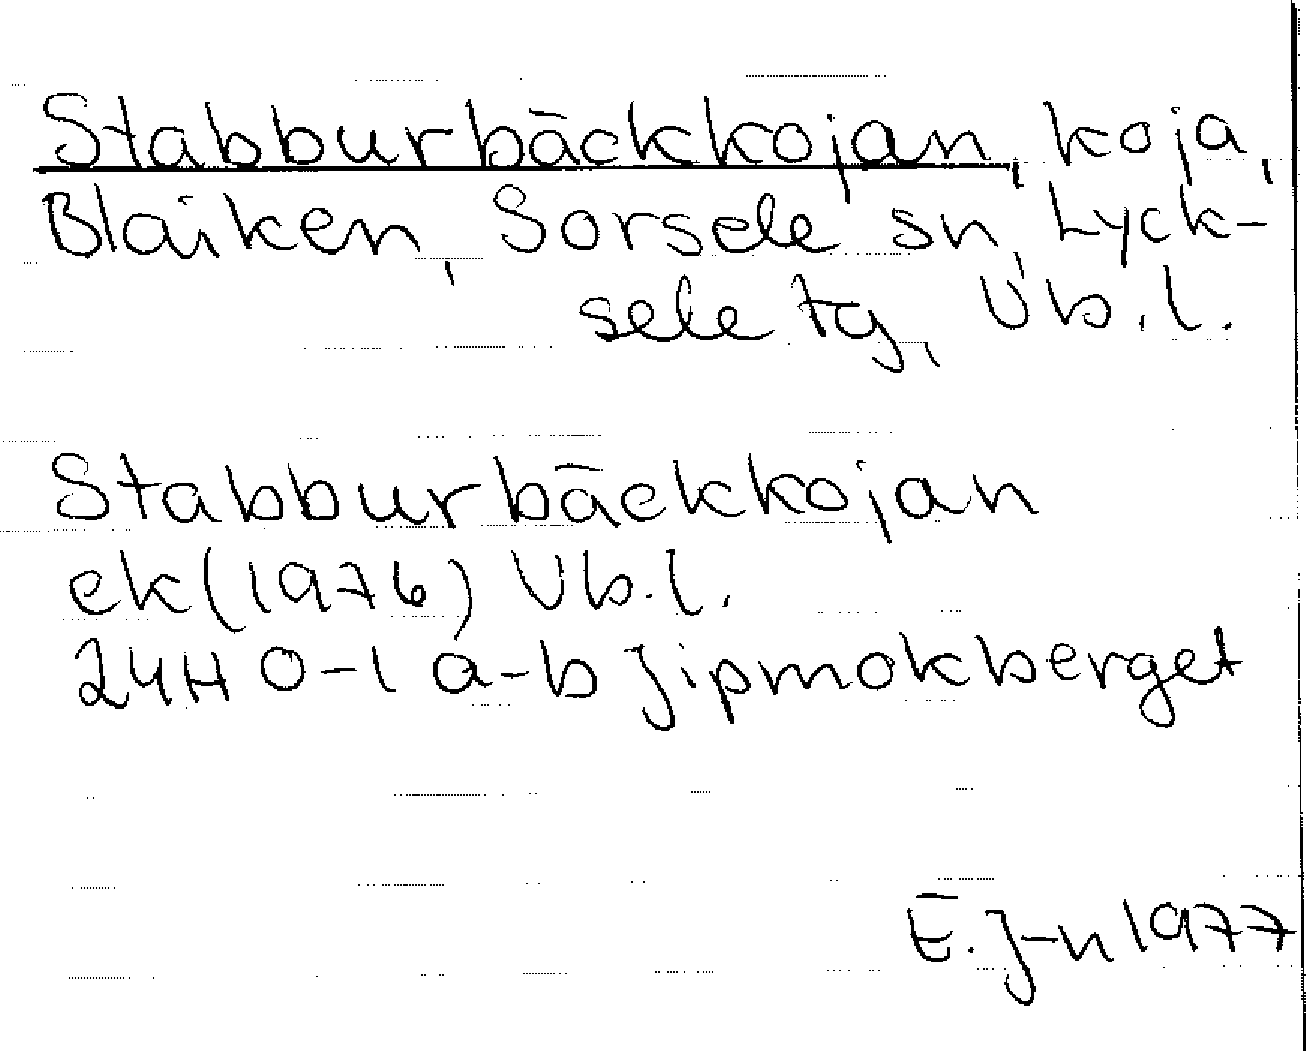 Stabburbäckkojan, koja,
Blaiken, Sorsele sn, Lyck-
sele tg, Vb.l.
Stabburbäckkojan
ek(1976) Vb.l.
24H 0-1 a-b Jipmokberget
E. J-n 1977